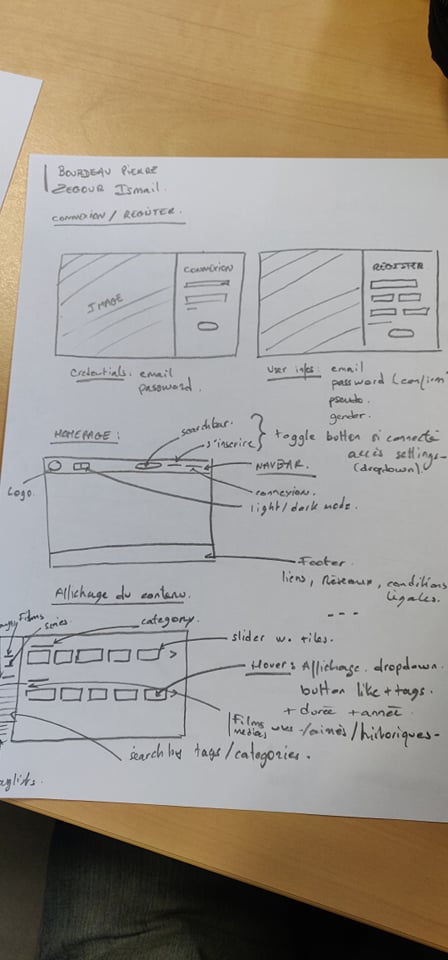 BOURDEAU PIERRE
ZEGOUR Ismail.
CONNEXION / REGISTER.
IMAGE
CONNEXION
REGISTER
Credentials: email
password.
User infos: email
password (confirm)
pseudo.
gender.
HOMEPAGE:
searchbar.
s'inscrire
toggle button si connecté
accès settings
(dropdown).
NAVBAR.
Logo.
connexion.
light/dark mode.
Footer
liens, Réseaux, conditions
légales.
---
Affichage du contenu.
Films
series
category.
slider w. tiles.
Hover: Affichage dropdown
button like + tags.
+ durée + année.
Films
medias vues /aimés/historiques-
search by tags/categories.